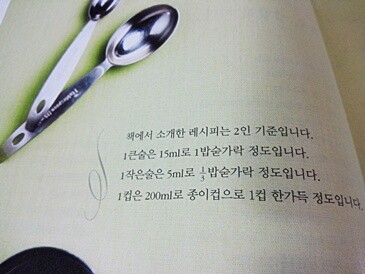 책에서 소개한 레시피는 2인 기준입니다.
1큰술은 15ml로 1밥숟가락 정도입니다.
1작은술은 5ml로 1/3밥숟가락 정도입니다.
1컵은 200ml로 종이컵으로 1컵 한가득 정도입니다.